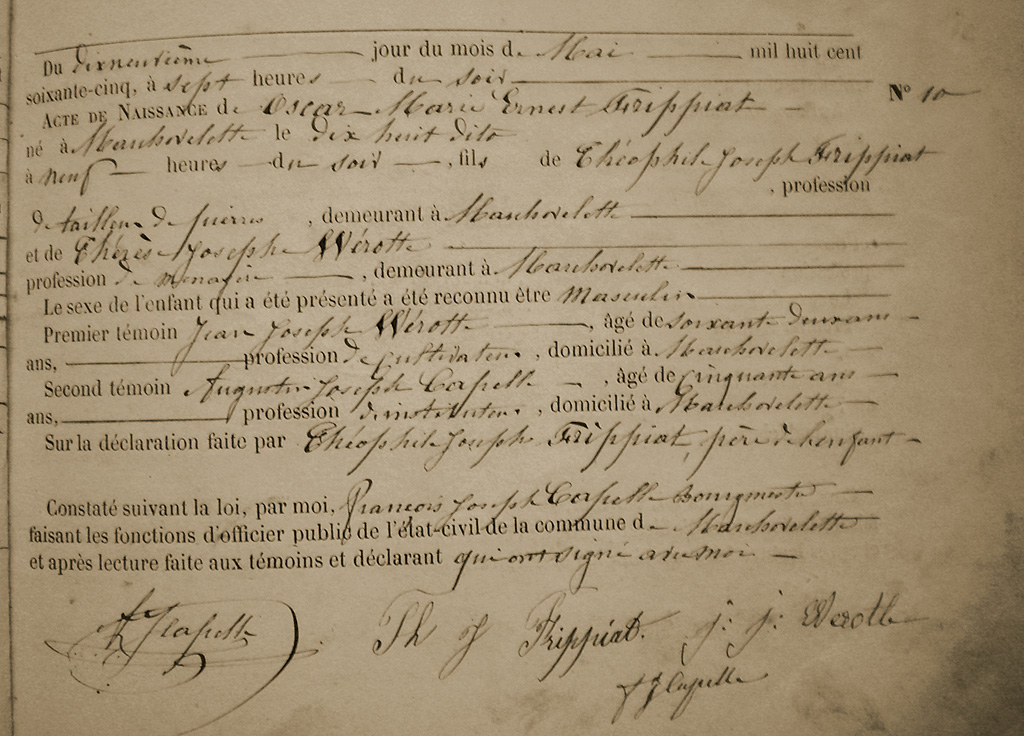 Du dixneuvième jour du mois de Mai mil huit cent
soixante-cinq, à sept heures du soir
N° 10
ACTE DE NAISSANCE de Oscar Marie Ernest Frippiat
né à Manhovelette le dix huit dito
à neuf heures du soir, fils de Théophile Joseph Frippiat
, profession
de tailleur de pierres, demeurant à Manhovelette
et de Thérèse Joseph Wérotte
profession de ménagère, demeurant à Manhovelette
Le sexe de l'enfant qui a été présenté a été reconnu être Masculin
Premier témoin Jean Joseph Wérotte, âgé de soixante deux ans
ans, profession de cultivateur, domicilié à Manhovelette
Second témoin Augustin Joseph Capelle, âgé de cinquante ans
ans, profession d'instituteur, domicilié à Manhovelette
Sur la déclaration faite par Théophile Joseph Frippiat, père de l'enfant
Constaté suivant la loi, par moi, François Joseph Capelle bourgmestre
faisant les fonctions d'officier public de l'état-civil de la commune de Manhovelette
et après lecture faite aux témoins et déclarant qui ont signé avec moi
Capelle Th J Frippiat. j: j: Werotte
J Capelle